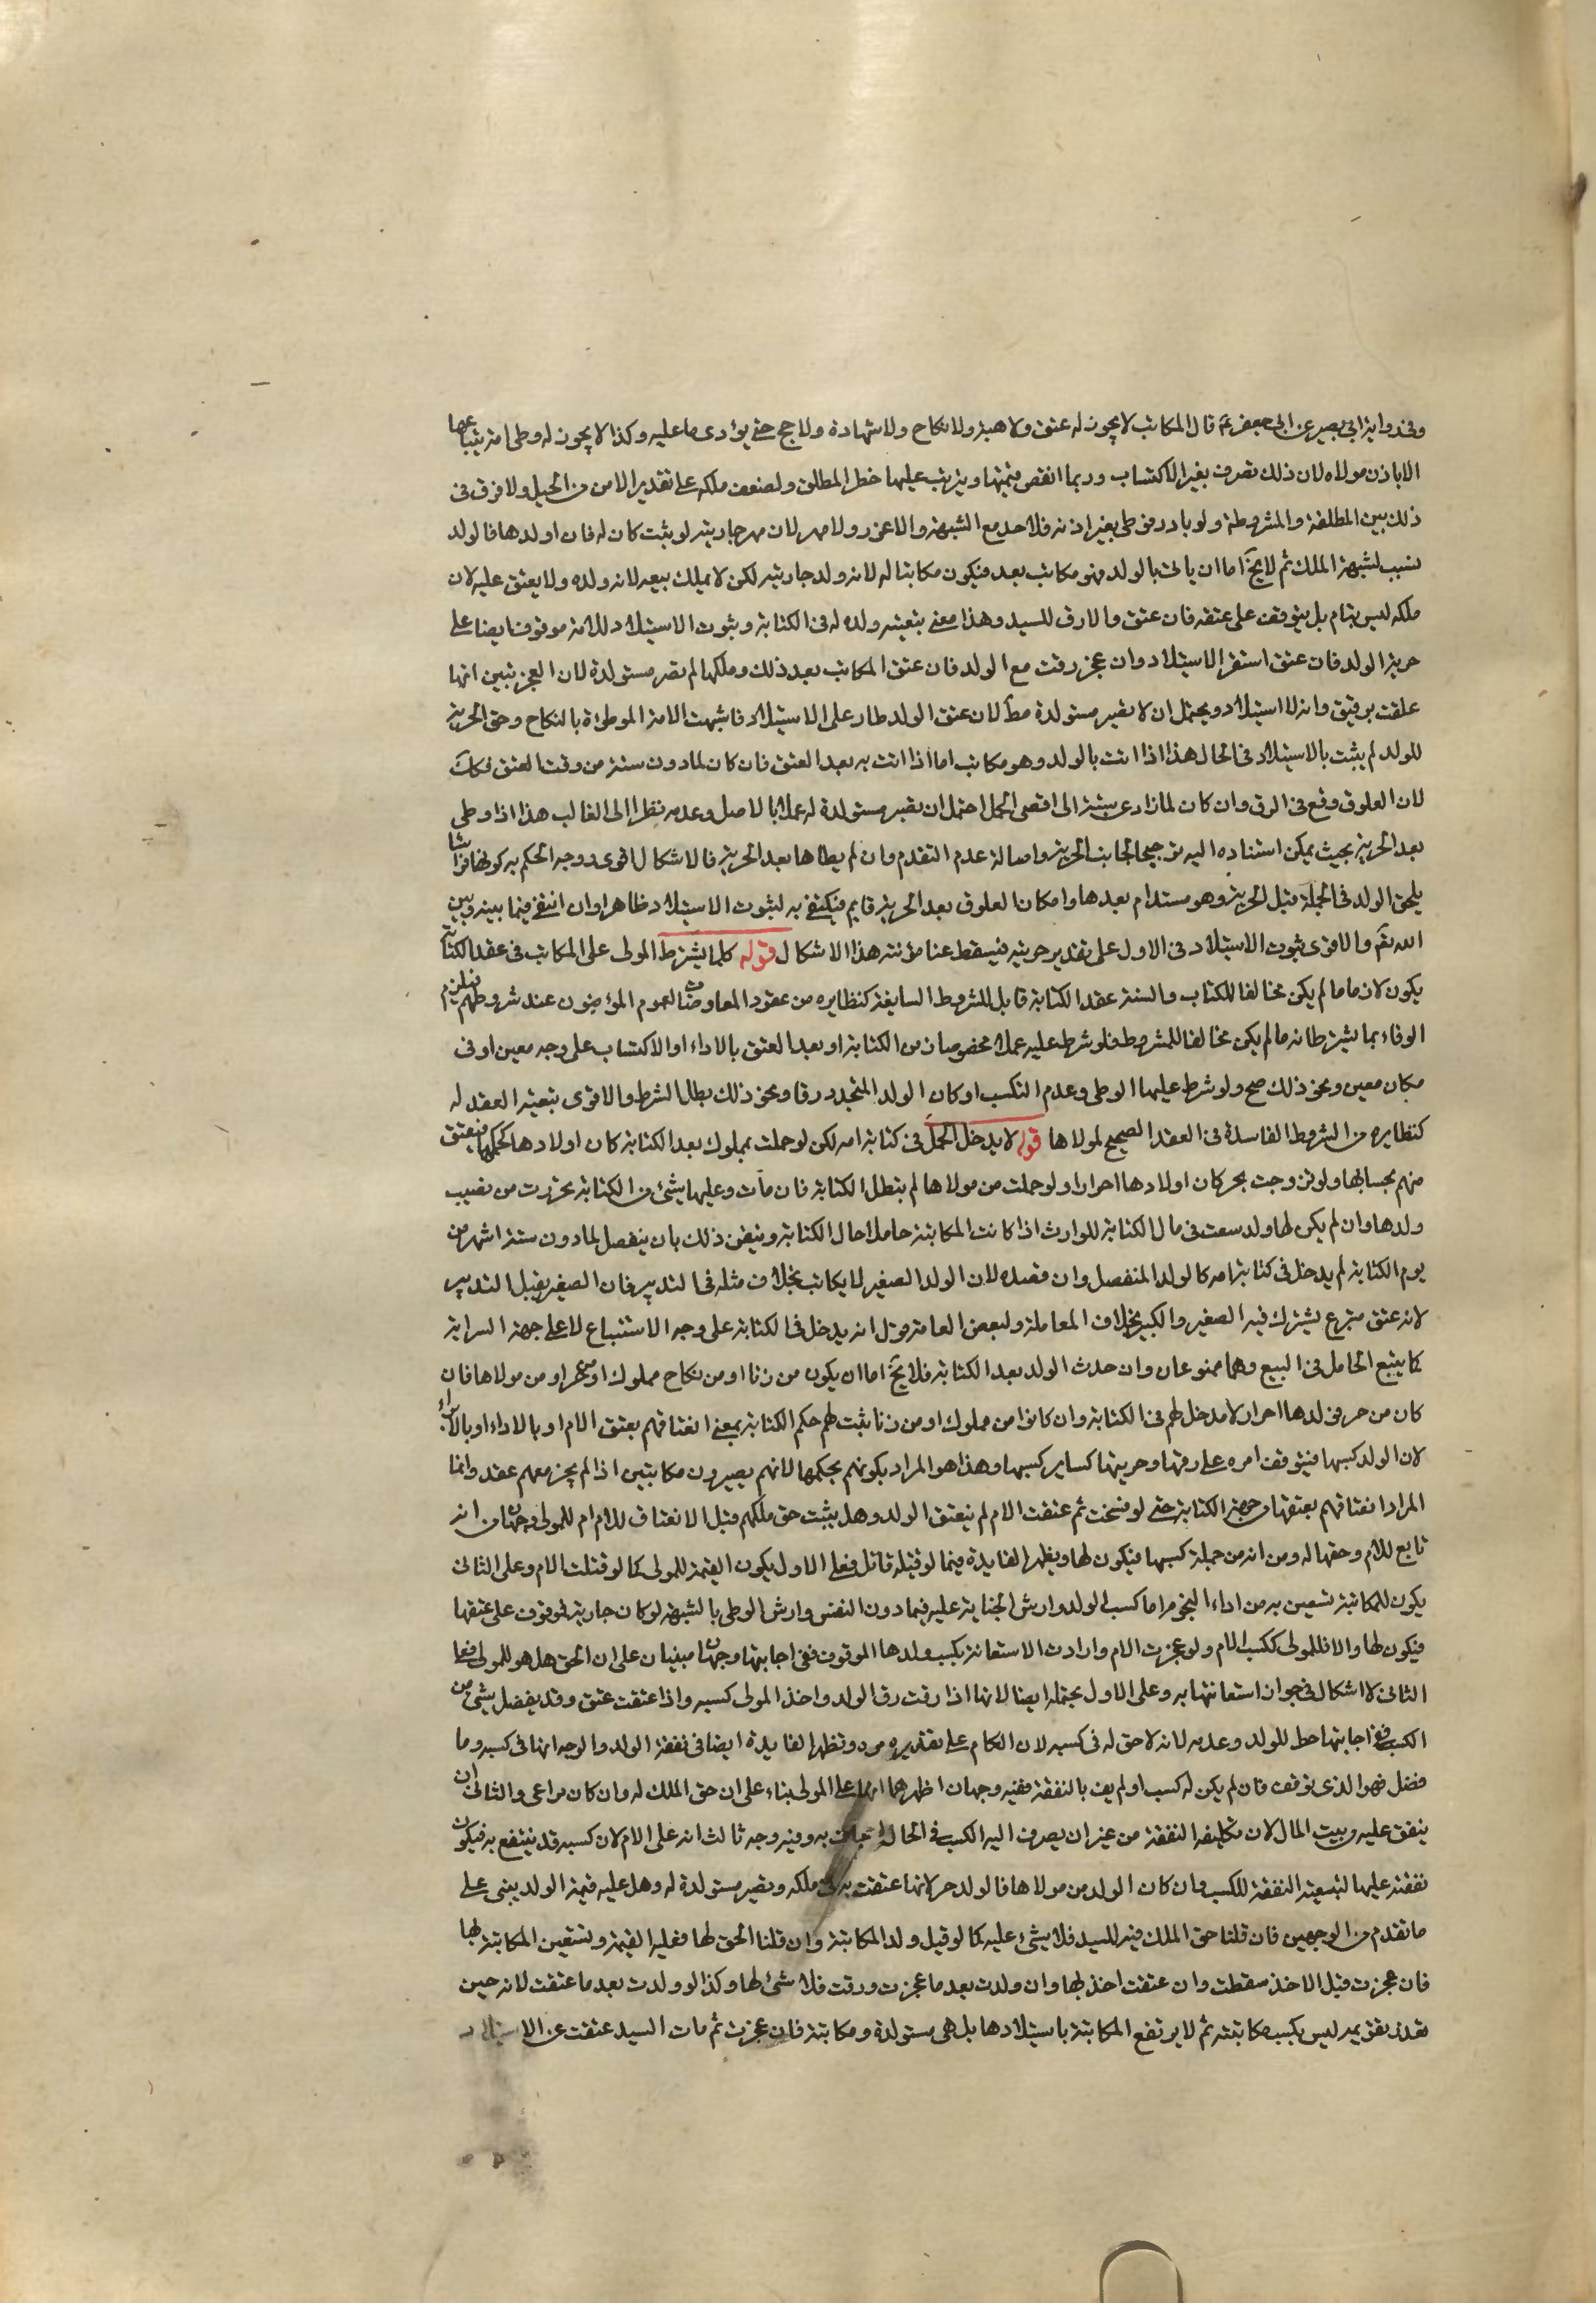 وفي رواية ابي بصير عن ابي جعفر ع قال المكاتب لا يجوز له عتق ولا هبة ولا نكاح ولا شهادة ولا حج حتى يؤدى ما عليه وكذا لا يجوز له وطى امة يبتاعها
الا باذن مولاه لان ذلك تصرف بغير الاكتساب وربما انقص قيمتها ويترتب عليها خطر الطلق ولضعف ملكه على تقدير الامن من الحبل ولا فرق في
ذلك بين المطلقة والمشروطة ولو بادر فوطى بغير اذنه فلا حد مع الشبهة والا عزر ولا مهر لان مهر جاريته لو ثبت كان له فان اولدها فالولد
نسيب لشبهة الملك ثم لا يخ اما ان ياتى بالولد وهو مكاتب بعد فيكون مكاتبا له لانه ولد جاريته لكن لا يملك بيعه لانه ولده ولا يعتق عليه لان
ملكه ليس بتام بل يتوقف على عتقه فان عتق والا رق للسيد وهذا معنى تبعية ولده له في الكتابة وثبوت الاستيلاد للامة موقوف ايضا على
حرية الولد فان عتق استقر الاستيلاد وان عجز رقت مع الولد فان عتق المكاتب بعد ذلك وملكها لم تصر مستولدة لان العجز تبين انها
علقت برقيق وانه لا استيلاد ويحتمل ان لا تصير مستولدة مط لان عتق الولد طار على الاستيلاد فاشبهت الامة الموطؤة بالنكاح وحق الحرية
للولد لم يثبت بالاستيلاد في الحال هذا اذا اتت بالولد وهو مكاتب اما اذا اتت به بعد العتق فان كان لما دون ستة من وقت العتق فكك
لان العلوق وقع في الرق وان كان لما زاد عن ستة الى اقصى الحمل احتمل ان تصير مستولدة له عملا بالاصل وعدمه نظرا الى الغالب هذا اذا وطى
بعد الحرية بحيث يمكن استناده اليه ترجيحا لجانب الحرية واصالة عدم التقدم وان لم يطاها بعد الحرية فالاشكال اقوى ووجه الحكم به كونها فراشا
يلحق الولد في الجملة قبل الحرية وهو مستدام بعدها وامكان العلوق بعد الحرية قايم فيكتفى به لثبوت الاستيلاد ظاهرا وان انتفى فيما بينه وبين
الله تعم والاقوى ثبوت الاستيلاد في الاول على تقدير حريته فيسقط عنا مؤنة هذا الاشكال قوله كلما يشترط المولى على المكاتب في عقد الكتابة
يكون لازما ما لم يكن مخالفا للكتاب والسنة عقد الكتابة قابل للشروط السايغة كنظايره من عقود المعاوضات لعموم المؤمنون عند شروطهم فيلزم
الوفاء بما يشترطانه ما لم يكن مخالفا للمشروط فلو شرط عليه عملا مخصوصا زمن الكتابة او بعد العتق بالاداء او الاكتساب على وجه معين او في
مكان معين ونحو ذلك صح ولو شرط عليها الوطى وعدم التكسب او كان الولد المتجدد رقا ونحو ذلك بطل الشرط والاقوى تبعية العقد له
كنظايره من الشروط الفاسدة في العقد الصحيح لمولاها قوله لا يدخل الحمل في كتابة امه لكن لو حملت بمملوك بعد الكتابة كان اولادها كحكمها فينعتق
منهم بحسابها ولو تزوجت بحر كان اولادها احرارا ولو حملت من مولاها لم تبطل الكتابة فان مات وعليها شئ من الكتابة تحررت من نصيب
ولدها وان لم يكن لها ولد سعت في مال الكتابة للوارث اذا كانت المكاتبة حاملا حال الكتابة وتيقن ذلك بان ينفصل لما دون ستة اشهر من
يوم الكتابة لم يدخل في كتابة امه كالولد المنفصل وان قصده لان الولد الصغير لا يكاتب بخلاف مثله في التدبير فان الصغير يقبل التدبير
لانه عتق متبرع يشترك فيه الصغير والكبير بخلاف المعاملة ولبعض العامة قول انه يدخل في الكتابة على وجه الاستتباع لا على جهة السراية
كما يتبع الحامل في البيع وهما ممنوعان وان حدث الولد بعد الكتابة فلا يخ اما ان يكون من زنا او من نكاح مملوك او من حر او من مولاها فان
كان من حر فولدها احرار لا مدخل لهم في الكتابة وان كانوا من مملوك او من زنا ثبت لهم حكم الكتابة بمعنى انعتاقهم بعتق الام او بالاداء او بالابراء
لان الولد كسبها فيتوقف امره على رقها وحريتها كساير كسبها وهذا هو المراد بكونهم بحكمها لا انهم يصيرون مكاتبين اذ لم يجز معهم عقد وانما
المراد انعتاقهم بعتقها من جهة الكتابة حتى لو فسخت ثم عتقت الام لم ينعتق الولد وهل يثبت حق ملكهم قبل الانعتاق للام ام للمولى وجهان من انه
تابع للام وحقها له ومن انه من جملة كسبها فيكون لها ويظهر الفايدة فيما لو قتله قاتل فعلى الاول يكون القيمة للمولى كما لو قتلت الام وعلى الثانى
يكون للمكاتبة تستعين به من اداء النجوم اما كسب الولد وارش الجناية عليه فيما دون النفس وارش الوطى بالشبهة لو كان جارية فموقوف على عتقها
فيكون لها والا فللمولى ككسب الام ولو عجزت الام وارادت الاستعانة بكسب ولدها الموقوف ففي اجابتها وجهان مبنيان على ان الحق هل هو للمولى فعلى
الثانى لا اشكال في جواز استعانتها به وعلى الاول يحتمله ايضا لانها اذا رقت رق الولد واخذ المولى كسبه واذا عتقت عتق وقد يفضل شئ من
الكسب ففي اجابتها حظ للولد وعدمه لانه لا حق له في كسبه لان الكلام على تقديره مردود وتظهر الفايدة ايضا في نفقة الولد والوجه انها في كسبه وما
فضل فهو الذى توقف فان لم يكن له كسب او لم يف بالنفقة ففيه وجهان اظهرهما انها على المولى بناء على ان حق الملك له وان كان مراعى والثانى ان
ينفق عليه من بيت المال لان تكليفه النفقة من غير ان يصرف اليه الكسب في الحال اجحاف به وفيه وجه ثالث انه على الام لان كسبه قد ينتفع به فيكون
نفقته عليها لتبعية النفقة للكسب وان كان الولد من مولاها فالولد حر لانها عتقت به في ملكه وتصير مستولدة له وهل عليه قيمة الولد يبنى على
ما تقدم من الوجهين فان قلنا حق الملك فيه للسيد فلا شئ عليه كما لو قتل ولد المكاتبة وان قلنا الحق لها فعليه القيمة وتستعين المكاتبة بها
فان عجزت قبل الاخذ سقطت وان عتقت اخذ لها وان ولدت بعد ما عجزت ورقت فلا شئ لها وكذا لو ولدت بعد ما عتقت لانه حين
تقدر تقويمه ليس بكسب مكاتبته ثم لا يرتفع المكاتبة باستيلادها بل هي مستولدة ومكاتبة فان عجزت ثم مات السيد عتقت عن الاستيلاد